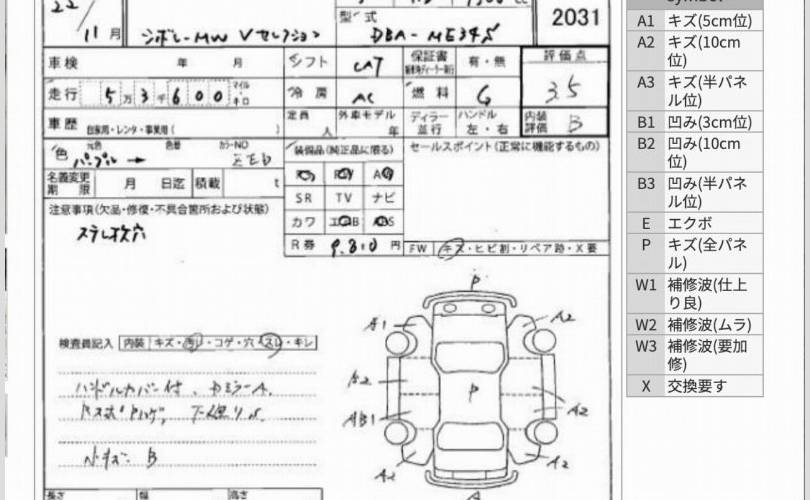 22/
11月
シボレーMW Vセレクション
型式
DBA-ME34S
2031
車検 年 月
シフト
CAT
保証書
有・無
評価点
3.5
走行 5万3千600
マイル・キロ
冷房
AC
燃料
G
車歴
自家用・レンタ・事業用( )
定員
人
外車モデル
年
ディラー
並行
ハンドル
左・右
内装
評価
B
色
元色
パープル→
色替
カラーNO
ZEB
装備品(純正品に限る)
セールスポイント(正常に機能するもの)
名義変更
期限
月 日迄
積載
t
SR TV ナビ
カワ
R券 9.810円
FW キズ・ヒビ割・リペア跡・X要
注意事項(欠品・修復・不具合箇所および状態)
検査員記入
内装 キズ・汚レ・コゲ・穴・スレ・キレ
ハンドルカバー付
小キズ B
P
A1
A2
A2
P
AB1
A2
A2
A2
A
長さ
幅
高さ
A1 キズ(5cm位)
A2 キズ(10cm
位)
A3 キズ(半パネ
ル位)
B1 凹み(3cm位)
B2 凹み(10cm
位)
B3 凹み(半パネ
ル位)
E エクボ
P キズ(全パネ
ル)
W1 補修波(仕上
り良)
W2 補修波(ムラ)
W3 補修波(要加
修)
X 交換要す